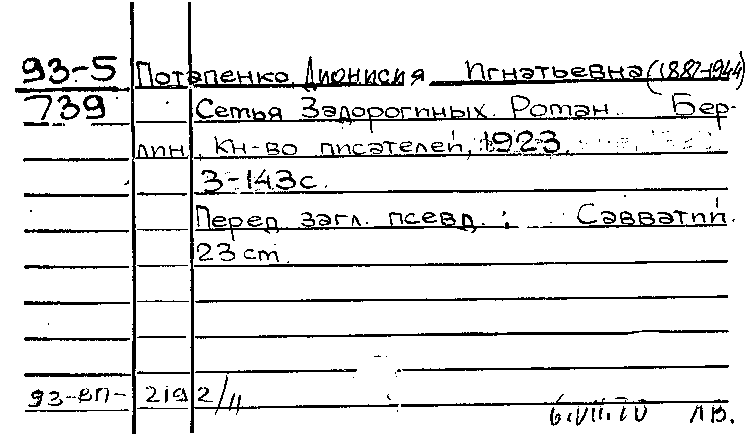 93-5 Потапенко Дионисия Игнатьевна (1887-1944)
739 Семья Задорогиных. Роман. Бер-
лин, Кн-во писателей, 1923.
3-143 с.
Перед загл. псевд.: Савватий.
23 cm.
93-ВП- 219 2/11
6.VII.70 ЛВ.